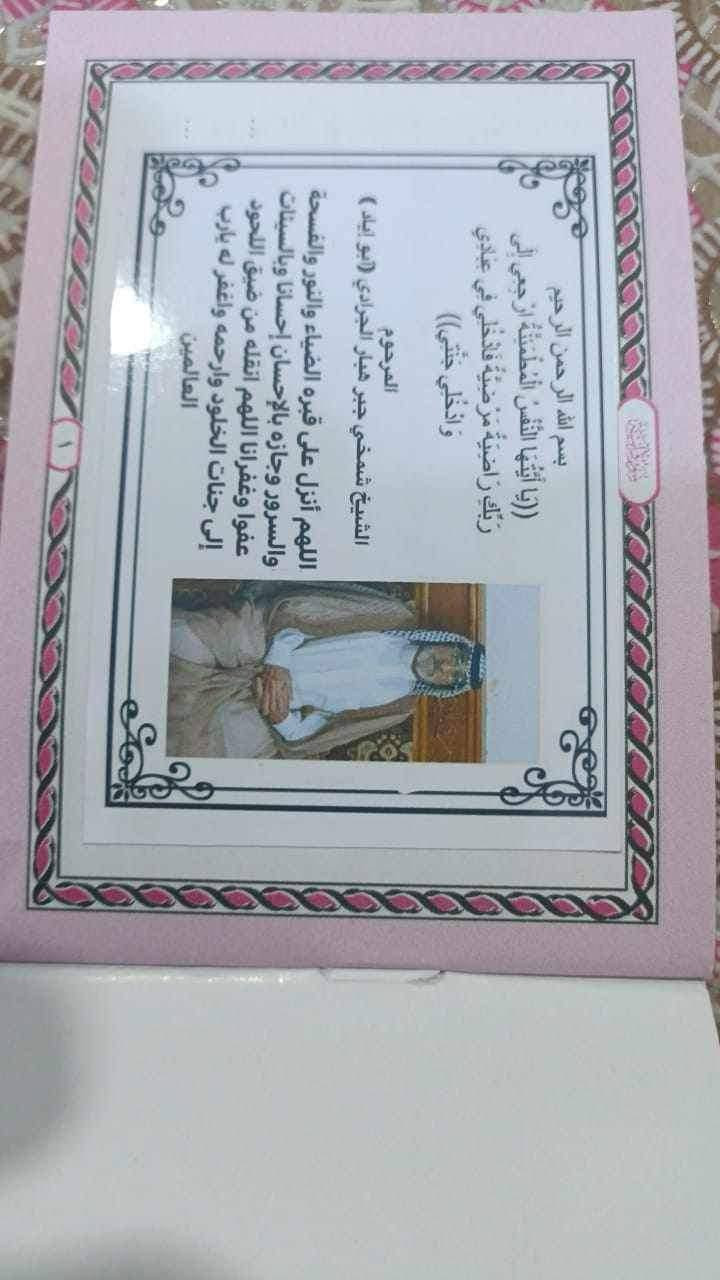 بسم الله الرحمن الرحيم
((يَا أَيَّتُهَا النَّفْسُ الْمُطْمَئِنَّةُ ارْجِعِي إِلَى
رَبِّكِ رَاضِيَةً مَرْضِيَّةً فَادْخُلِي فِي عِبَادِي
وَادْخُلِي جَنَّتِي))
المرحوم
الشيخ شمخي جبر هبار الجرادي (ابو اياد)
اللهم أنزل على قبره الضياء والنور والفسحة
والسرور وجازه بالإحسان إحسانا وبالسيئات
عفوا وغفرانا اللهم انقله من ضيق اللحود
إلى جنات الخلود وارحمه واغفر له يارب
العالمين
١